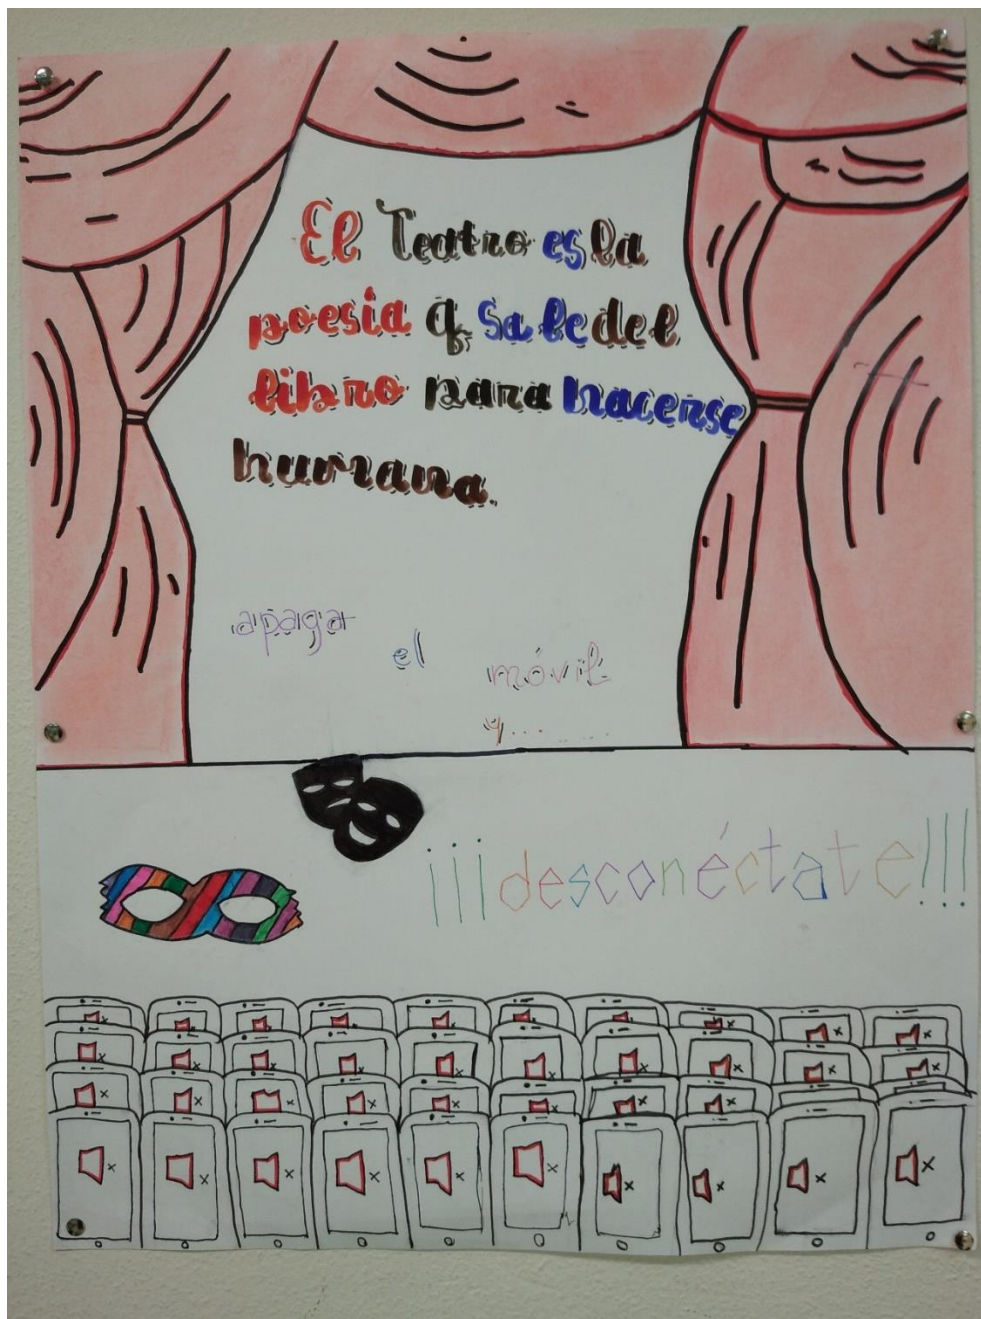 El Teatro es la
poesia q sale del
libro para hacerse
humana.
apaga
el
móvil
y......
¡¡¡desconéctate!!!